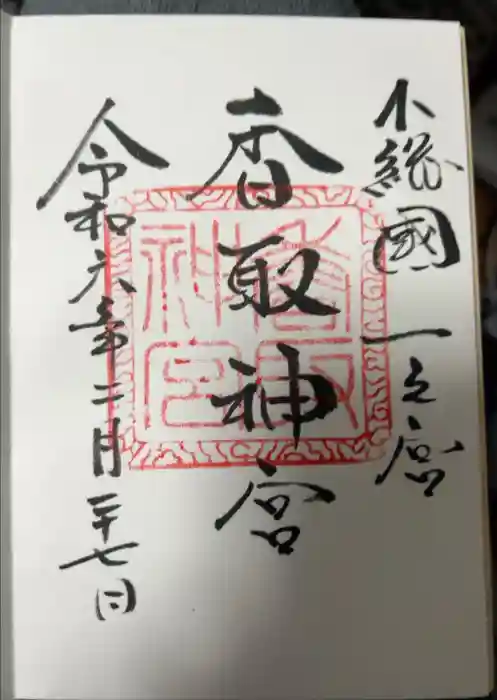 下総國一之宮
香取神宮
香取神宮
令和六年二月二十七日